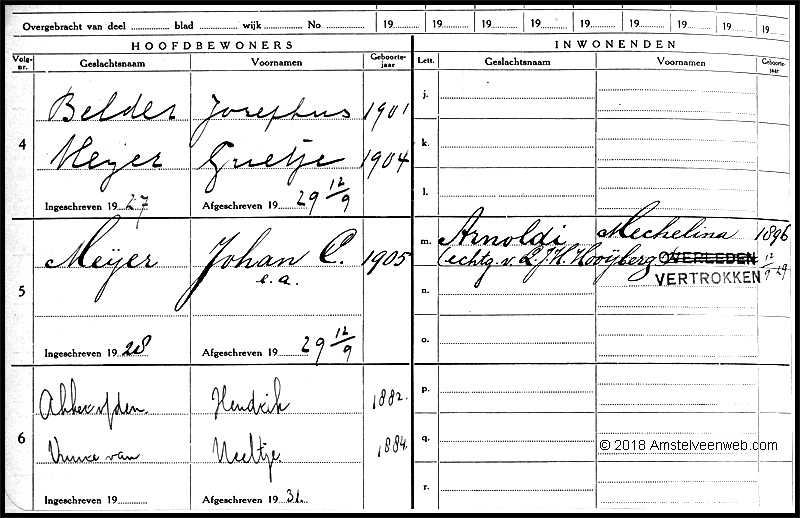 Overgebracht van deel blad wijk No. 19 19 19 19 19 19 19 19
HOOFDBEWONERS INWONENDEN
Volg-nr. Geslachtsnaam Voornamen Geboorte-jaar Lett. Geslachtsnaam Voornamen Geboorte-jaar
j.
4 Belder Josephus 1901
k.
Meyer Grietje 1904
l.
Ingeschreven 19 27 Afgeschreven 19 29 12/9
m. Arnoldi Mechelina 1896
5 Meijer Johan C. 1905
(echtg. v. L.J.H. Hooÿberg OVERLEDEN 12/9 29
e.a. VERTROKKEN
n.
o.
Ingeschreven 19 28 Afgeschreven 19 29 12/9
p.
6 Hendrik 1882.
q.
van Neeltje 1884.
© 2018 Amstelveenweb.com
r.
Ingeschreven 19 Afgeschreven 19 31.